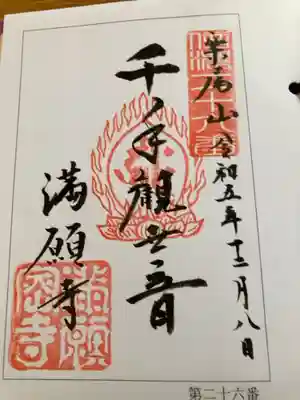 令和五年十二月八日
千手觀世音
満願寺
満願寺
第二十六番